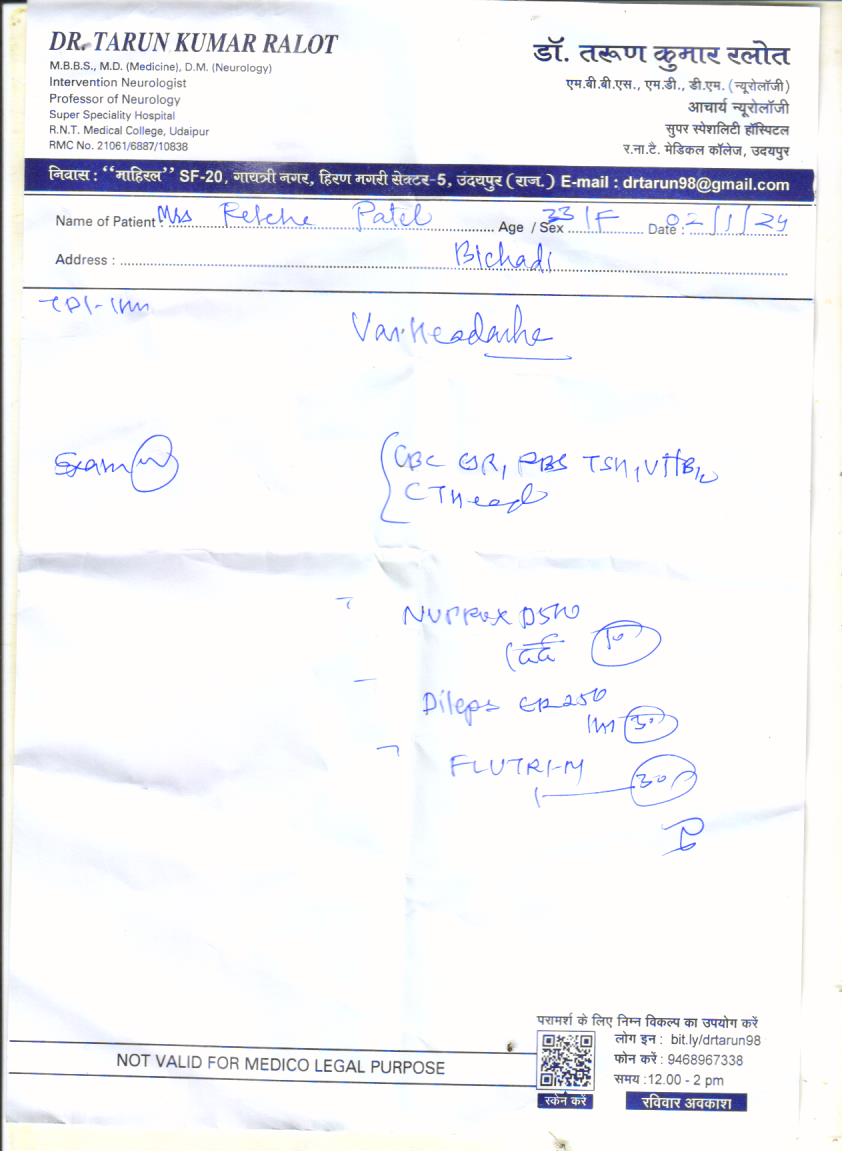 DR. TARUN KUMAR RALOT
M.B.B.S., M.D. (Medicine), D.M. (Neurology)
Intervention Neurologist
Professor of Neurology
Super Speciality Hospital
R.N.T. Medical College, Udaipur
RMC No. 21061/6887/10838
डॉ. तरूण कुमार रलोत
एम.बी.बी.एस., एम.डी., डी.एम. (न्यूरोलॉजी)
आचार्य न्यूरोलॉजी
सुपर स्पेशलिटी हॉस्पिटल
र.ना.टै. मेडिकल कॉलेज, उदयपुर
निवास : "माहिरल" SF-20, गायत्री नगर, हिरण मगरी सेक्टर-5, उदयपुर (राज.) E-mail : drtarun98@gmail.com
Name of Patient : Mrs Patel Age / Sex 33/F Date : 02/1/24
Address : Bichadi
Headache
Exam
CBC ESR, PBS TSH, Vit B12
CT Head
D 500
दर्द 10
ER 250
30
FLUTRI-M
30
परामर्श के लिए निम्न विकल्प का उपयोग करें
लोग इन : bit.ly/drtarun98
फोन करें : 9468967338
समय : 12.00 - 2 pm
स्केन करें
रविवार अवकाश
NOT VALID FOR MEDICO LEGAL PURPOSE